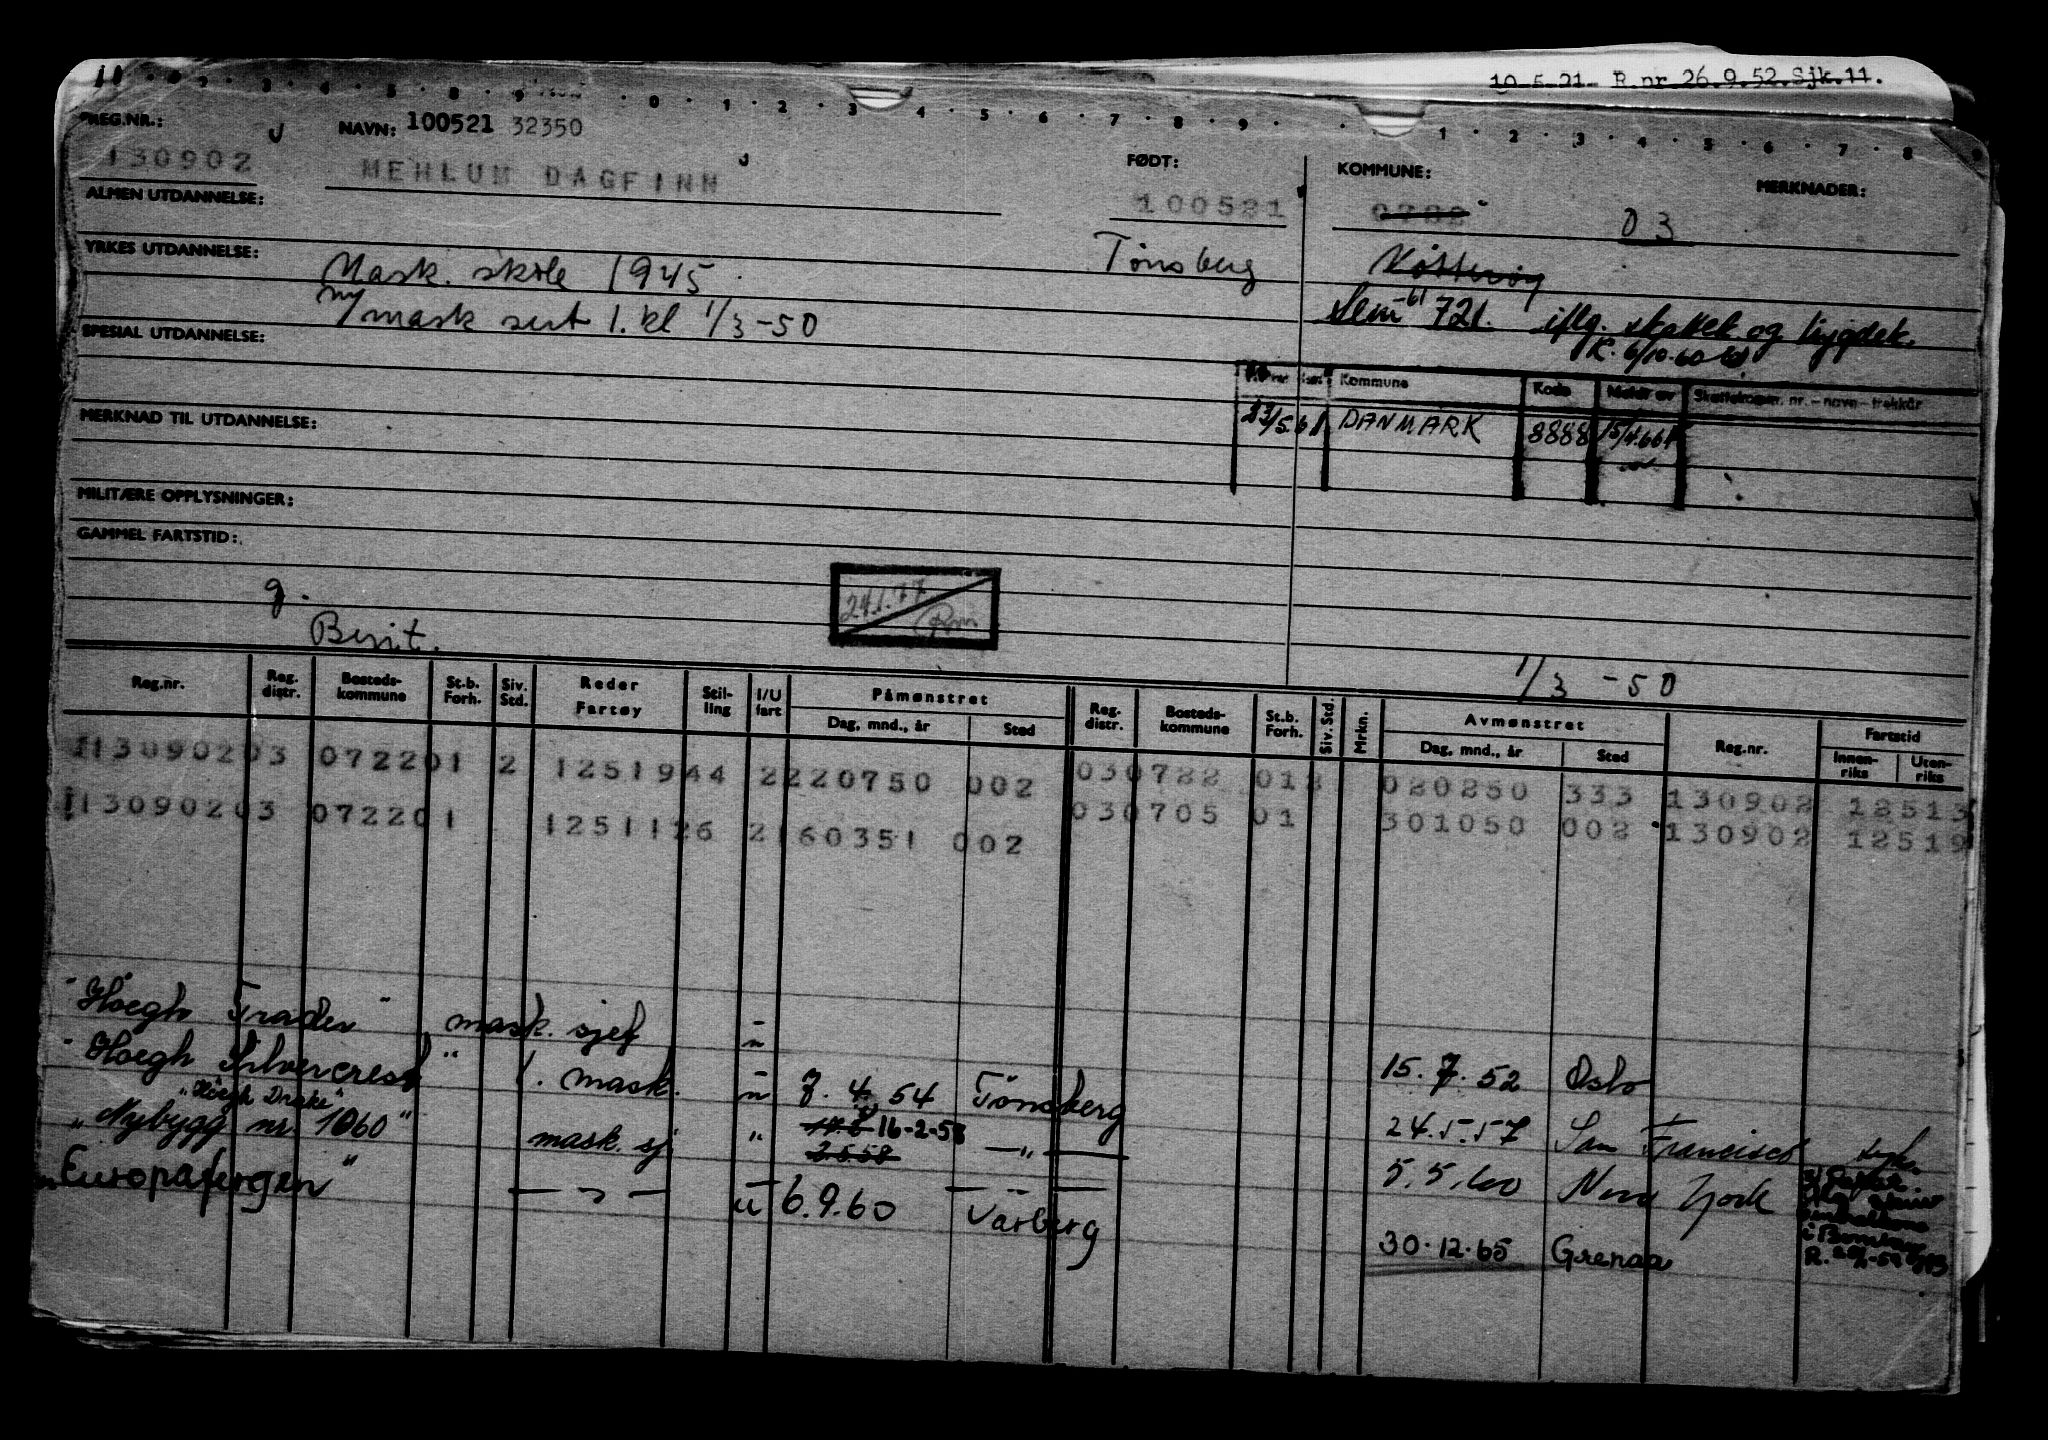 10.5.21 R.nr 26.9.52.Sjk.11.
REG.NR.: NAVN: 100521 32350 FØDT: KOMMUNE: MERKNADER:
130902 MEHLUM DAGFINN 100521 03
ALMEN UTDANNELSE:
YRKES UTDANNELSE: Mask. skole 1945 Tønsberg
mask sert 1. kl 1/3-50 Sem -61 721. iflg. skattek og trygdek.
R. 6/10-60
SPESIAL UTDANNELSE:
Kommune Kode Meldt av Skattetrygr. nr. - navn - trekkår
23/5.61 DANMARK 8888 15/4.66
MERKNAD TIL UTDANNELSE:
MILITÆRE OPPLYSNINGER:
GAMMEL FARTSTID:
g. 24.1.77
Berit. 1/3 -50
Reg.nr. Reg. distr. Bosteds-kommune St.b. Forh. Siv. Std. Reder Fartøy Stil-ling I/U fart Påmønstret Dag, mnd., år Sted Reg. distr. Bosteds-kommune St.b. Forh. Siv. Std. Mrkn. Avmønstret Dag, mnd., år Sted Reg.nr. Fartstid Innen-riks Uten-riks
113090203 072201 2 1251944 2220750 002 030722 012 020250 333 130902 12513
113090203 072201 1251126 2160351 002 030705 01 301050 002 130902 12519
"Høegh Trader" mask. sjef u 15.7.52 Oslo
"Høegh Silvercrest" 1. mask. u 7.4.54 Tønsberg 24.5.57 San Francisco syk.
"Høegh Drake"
"Nybygg nr. 1060" mask. sj " 16-2-58 — " — 5.5.60 New York
2.5.58
"Europafergen" — " — u 6.9.60 Varberg 30.12.65 Grenaa
i Bombay